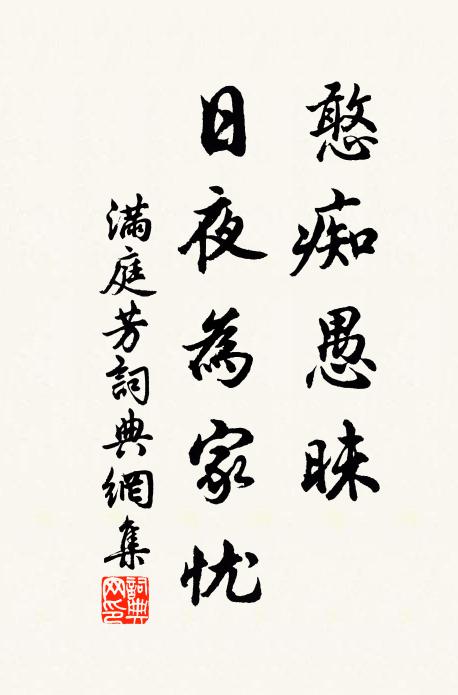 憨痴愚昧
日夜為家忧
满庭芳詞典網集
詞典
网印